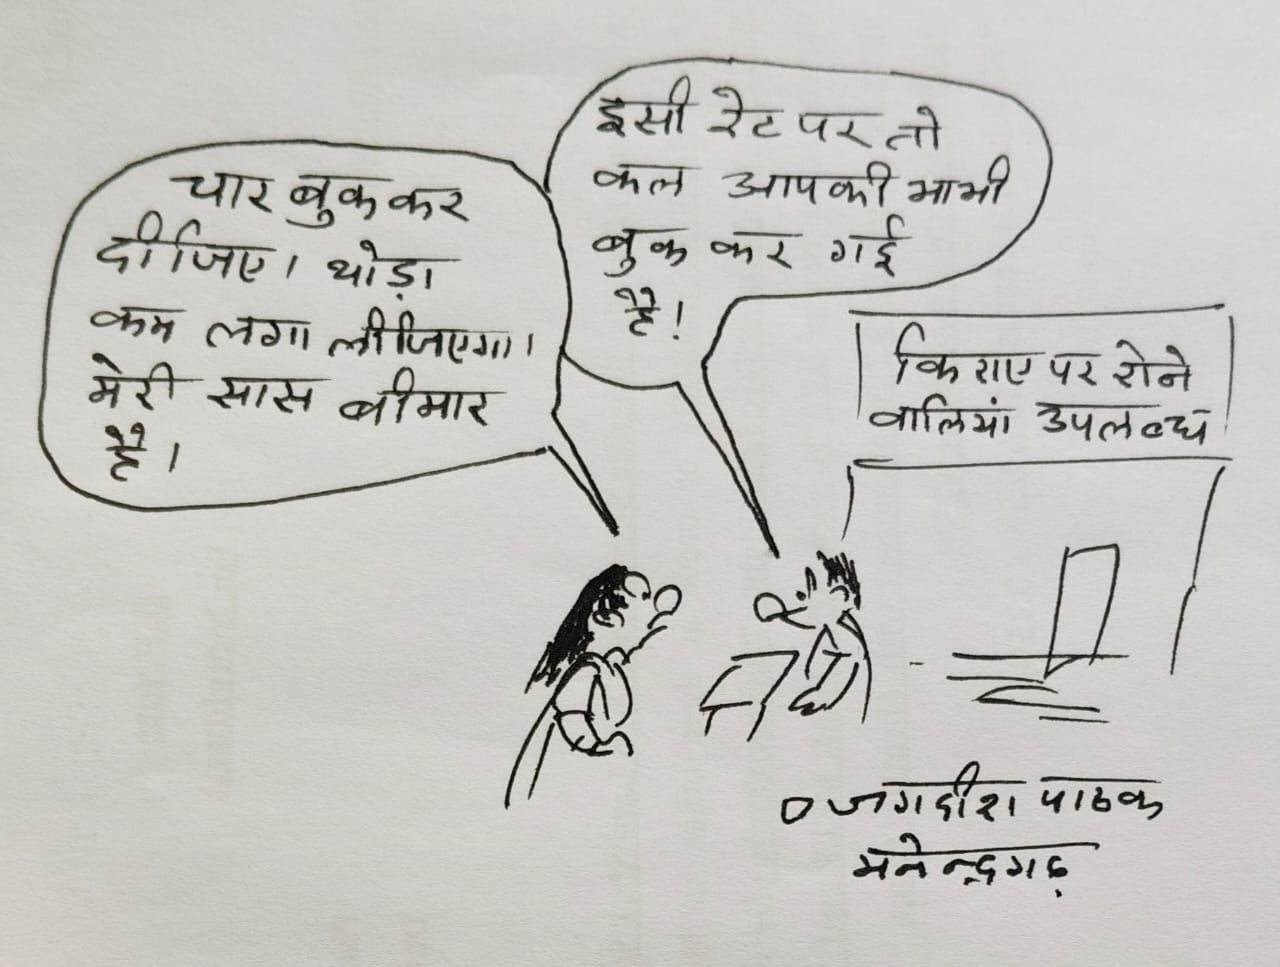 चार बुक कर
दीजिए। थोड़ा
कम लगा लीजिएगा।
मेरी सास बीमार
है।
इसी रेट पर तो
कल आपकी भाभी
बुक कर गई
है!
किराए पर रोने
वालियां उपलब्ध
जगदीश पाठक
मनेन्द्रगढ़